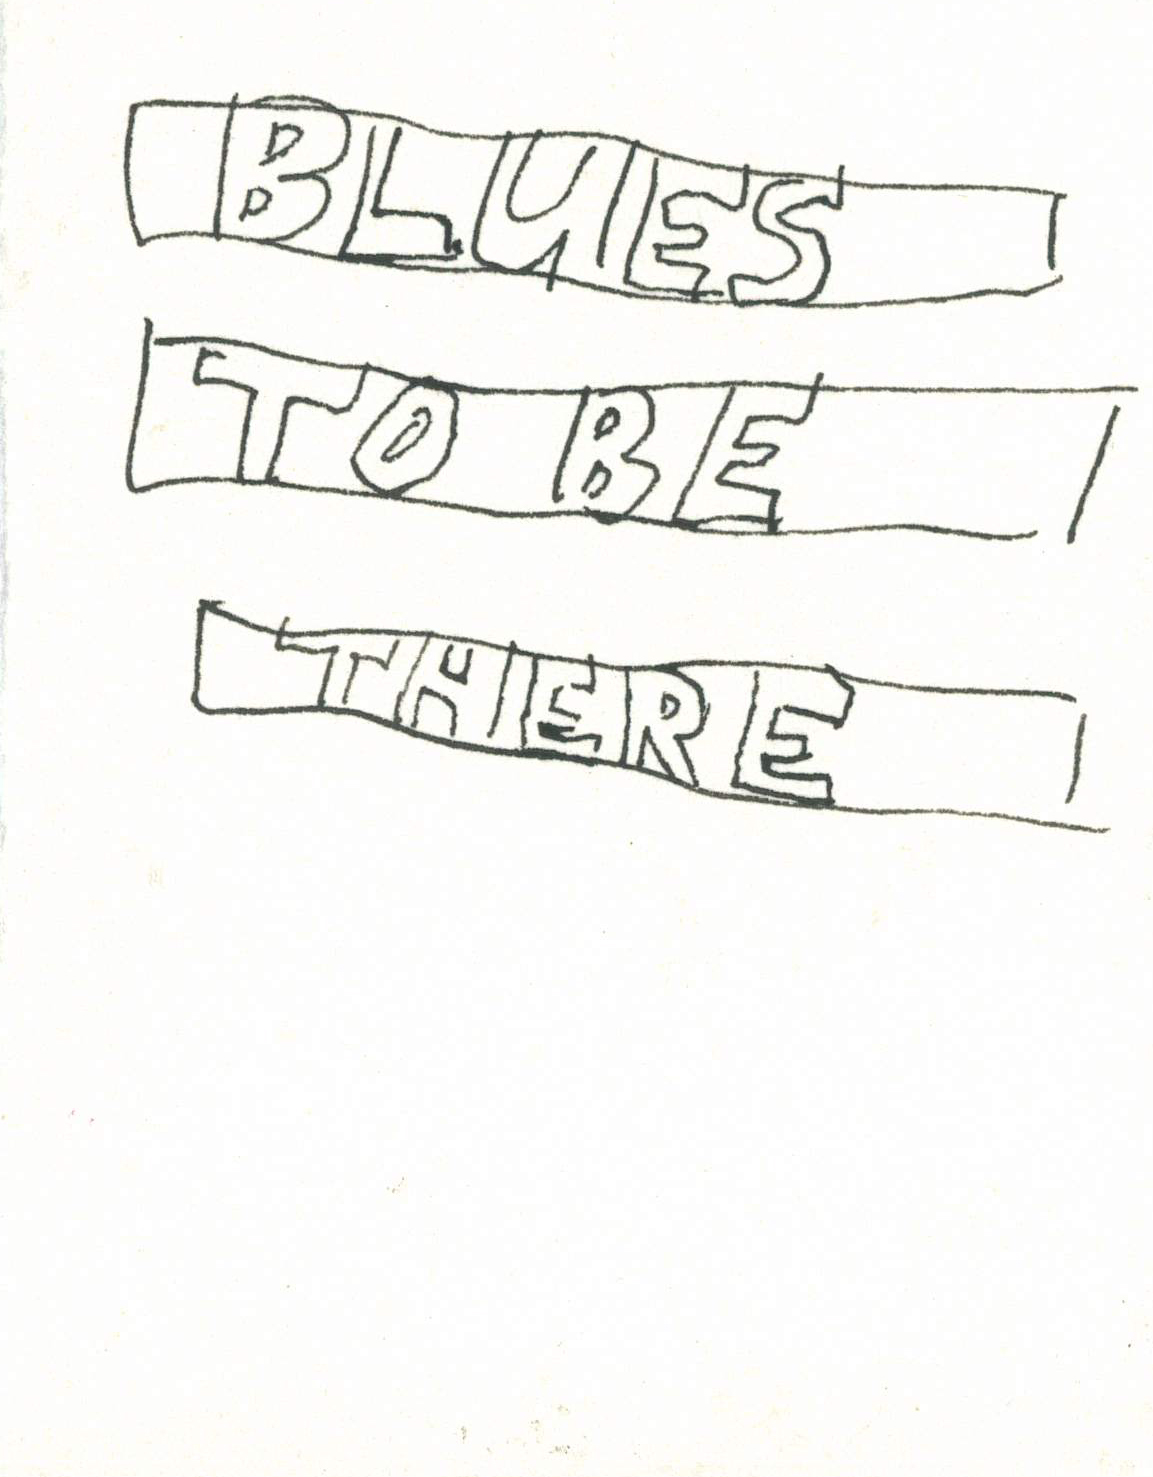 BLUES
TO BE
THERE